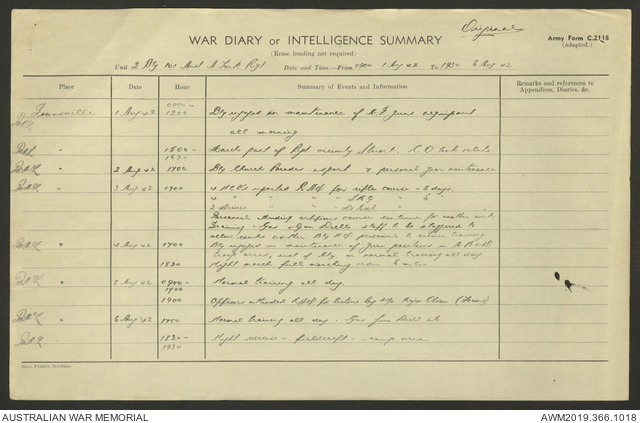 Original
WAR DIARY or INTELLIGENCE SUMMARY
Army Form C.2118
(adapted.)
(Erase heading not required)
Unit 2 Bty 101 Aust A Tk Regt Date and Time—From 0900 1 Aug 42 To 1930 6 Aug 42
Place Date Hour Summary of Events and Information Remarks and references to Appendices, Diaries, &c.
Townsville 1 Aug 42 0900- 1200 Bty engaged on maintenance of guns equipment
all morning
" 1500- 1630 March past of Regt vicinity Stuart. C.O took salute
" 2 Aug 42 1700 Bty Church Parades sport & personal gear maintenance
" 3 Aug 42 0900 4 NCO's reported RHQ for rifle course - 5 days.
4 " " " " LMG " 6 "
2 Drivers " " "
Personnel attending course continue for another week
Training - Gas & Gun Drills staff to be staggered to
allow Bty HQ personnel to training
" 4 Aug 42 1700 Bty engaged in maintenance of gun positions in A B & D
Troop areas, rest of Bty on normal training all day
1830 Night march full marching order 6 miles
" 5 Aug 42 0900- 1700 Normal training all day.
1900 Officers attended RHQ for lecture by Major
" 6 Aug 42 1700 Normal training all day - Gas Gun Drill etc
" 1830- 1930 Night exercise - fieldcraft - camp area
Govt. Printer, Brisbane
AUSTRALIAN WAR MEMORIAL
AWM2019.366.1018